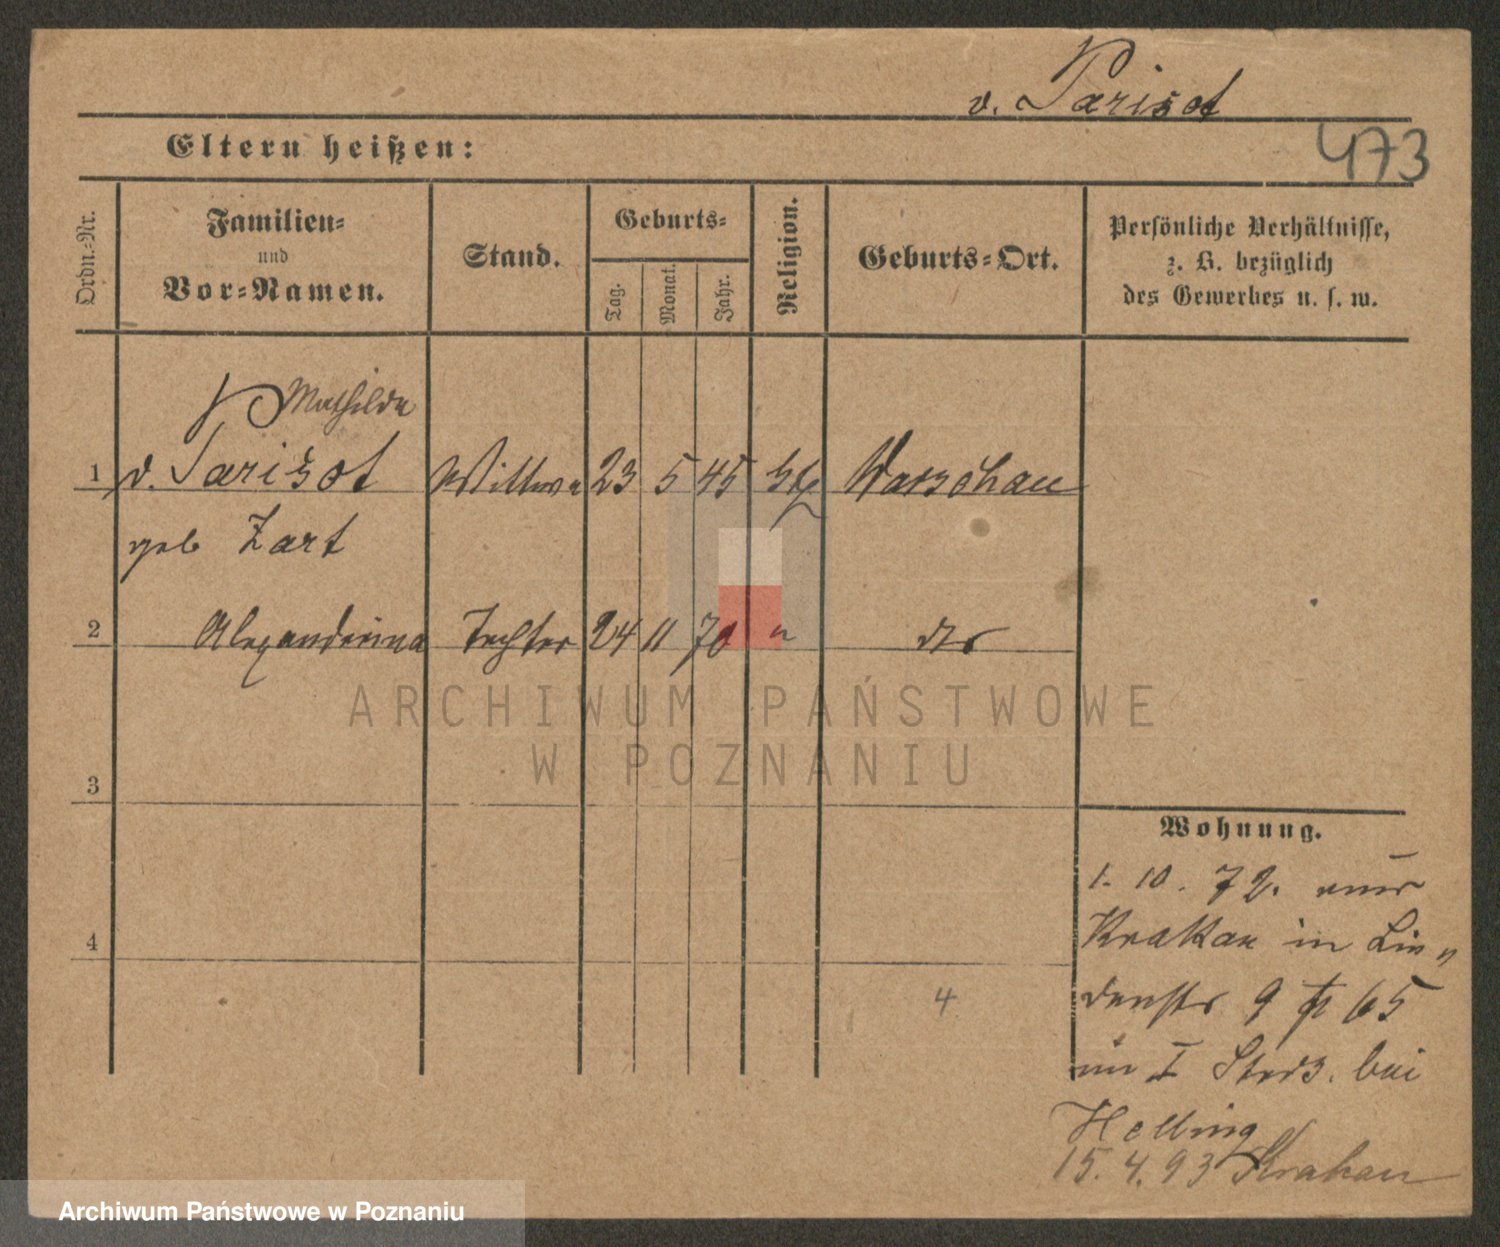 v. Parisot
473
Eltern heißen:
Ordn.-Nr.
Familien-
und
Vor-Namen.
Stand.
Geburts-
Tag.
Monat.
Jahr.
Religion.
Geburts-Ort.
Persönliche Verhältnisse,
z. B. bezüglich
des Gewerbes u. s. w.
Mathilde
1 v. Parisot Wittwe 23 5 45 Warschau
geb Zart
2 Alexandrina Tochter 24 11 70 " do
3
4
4
Wohnung.
1. 10. 72. aus
Krakau in Lin
denstr 9 65
im I Stock. bei
Helling
15.4.93 Krakau
ARCHIWUM PAŃSTWOWE
W POZNANIU
Archiwum Państwowe w Poznaniu